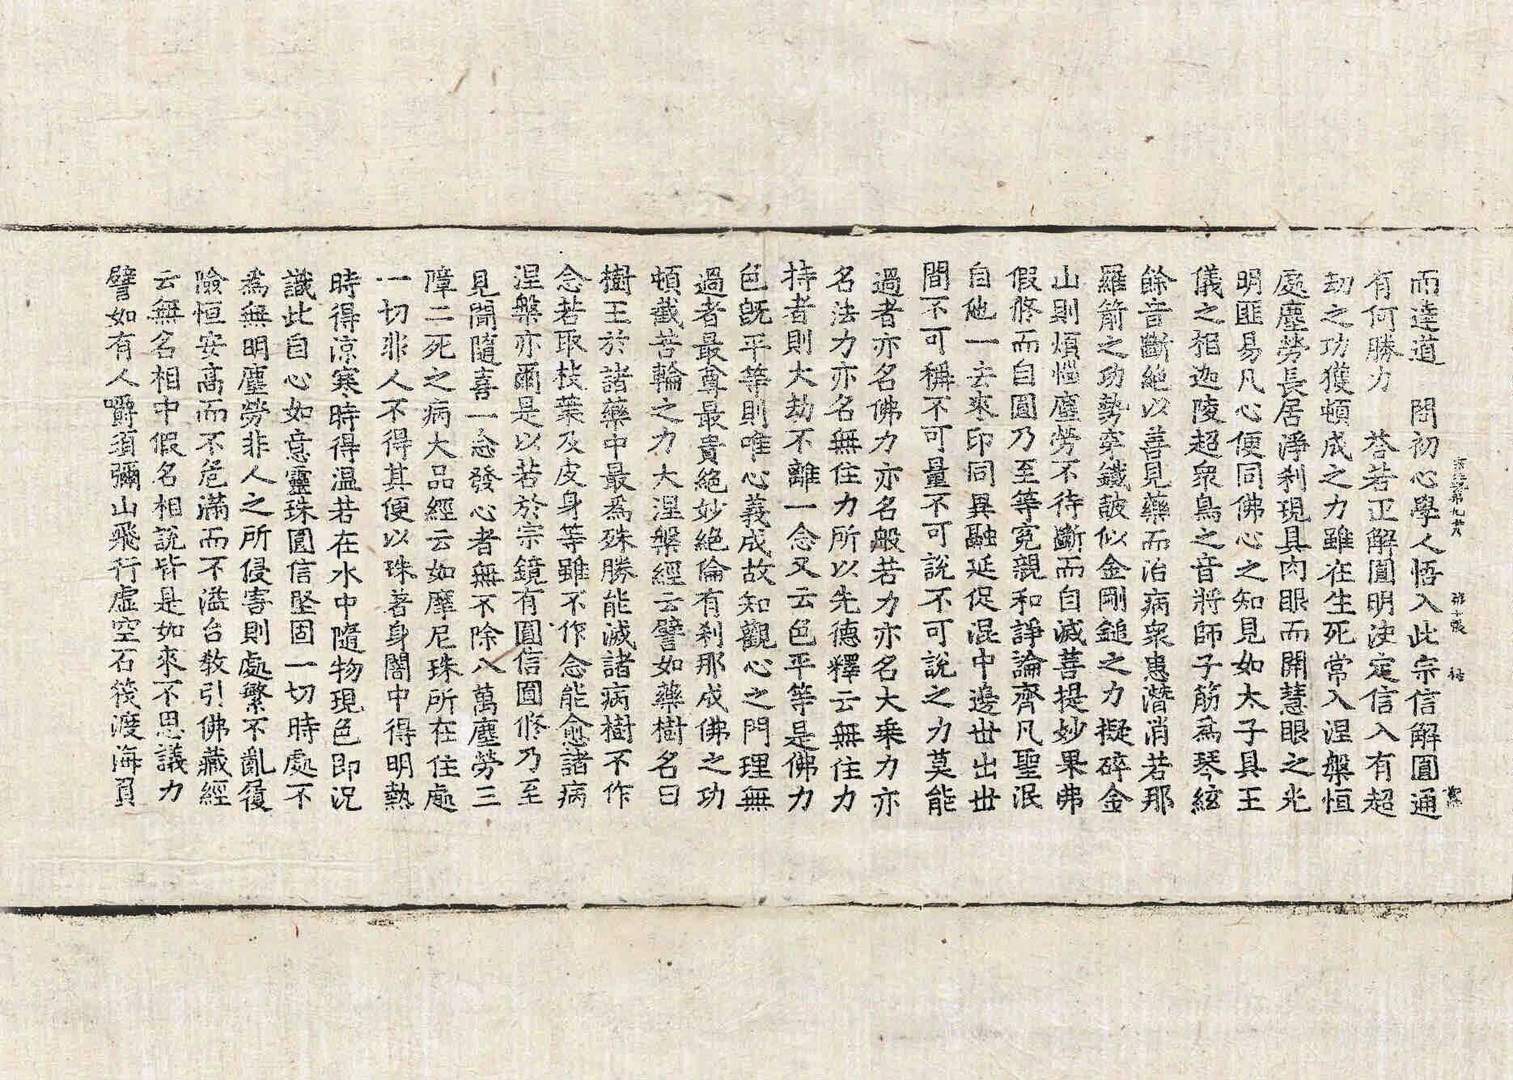 宗鏡錄第九卷 第十張 綺
而達道　問初心學人悟入此宗信解圓通
有何勝力　荅若正解圓明決定信入有超
劫之功獲頓成之力雖在生死常入涅槃恒
處塵勞長居淨刹現具肉眼而開慧眼之光
明匪易凡心便同佛心之知見如太子具王
儀之相迦陵超衆鳥之音將師子筋爲琴絃
餘音斷絕以善見藥而治病衆患潛消若那
羅箭之功勢穿鐵皷似金剛鎚之力擬碎金
山則煩惱塵勞不待斷而自滅菩提妙果弗
假修而自圓乃至等冤親和諍論齊凡聖泯
自他一去來印同異融延促混中邊世出世
間不可稱不可量不可說不可說之力莫能
過者亦名佛力亦名般若力亦名大乘力亦
名法力亦名無住力所以先德釋云無住力
持者則大劫不離一念又云色平等是佛力
色旣平等則唯心義成故知觀心之門理無
過者最尊最貴絕妙絕倫有刹那成佛之功
頓截苦輪之力大涅槃經云譬如藥樹名曰
樹王於諸藥中最爲殊勝能滅諸病樹不作
念若取枝葉及皮身等雖不作念能愈諸病
涅槃亦爾是以若於宗鏡有圓信圓修乃至
見聞隨喜一念發心者無不除八萬塵勞三
障二死之病大品經云如摩尼珠所在住處
一切非人不得其便以珠著身闇中得明熱
時得涼寒時得溫若在水中隨物現色即況
識此自心如意靈珠圓信堅固一切時處不
爲無明塵勞非人之所侵害則處繁不亂履
險恒安高而不危滿而不溢台教引佛藏經
云無名相中假名相說皆是如來不思議力
譬如有人嚼須彌山飛行虛空石筏渡海負